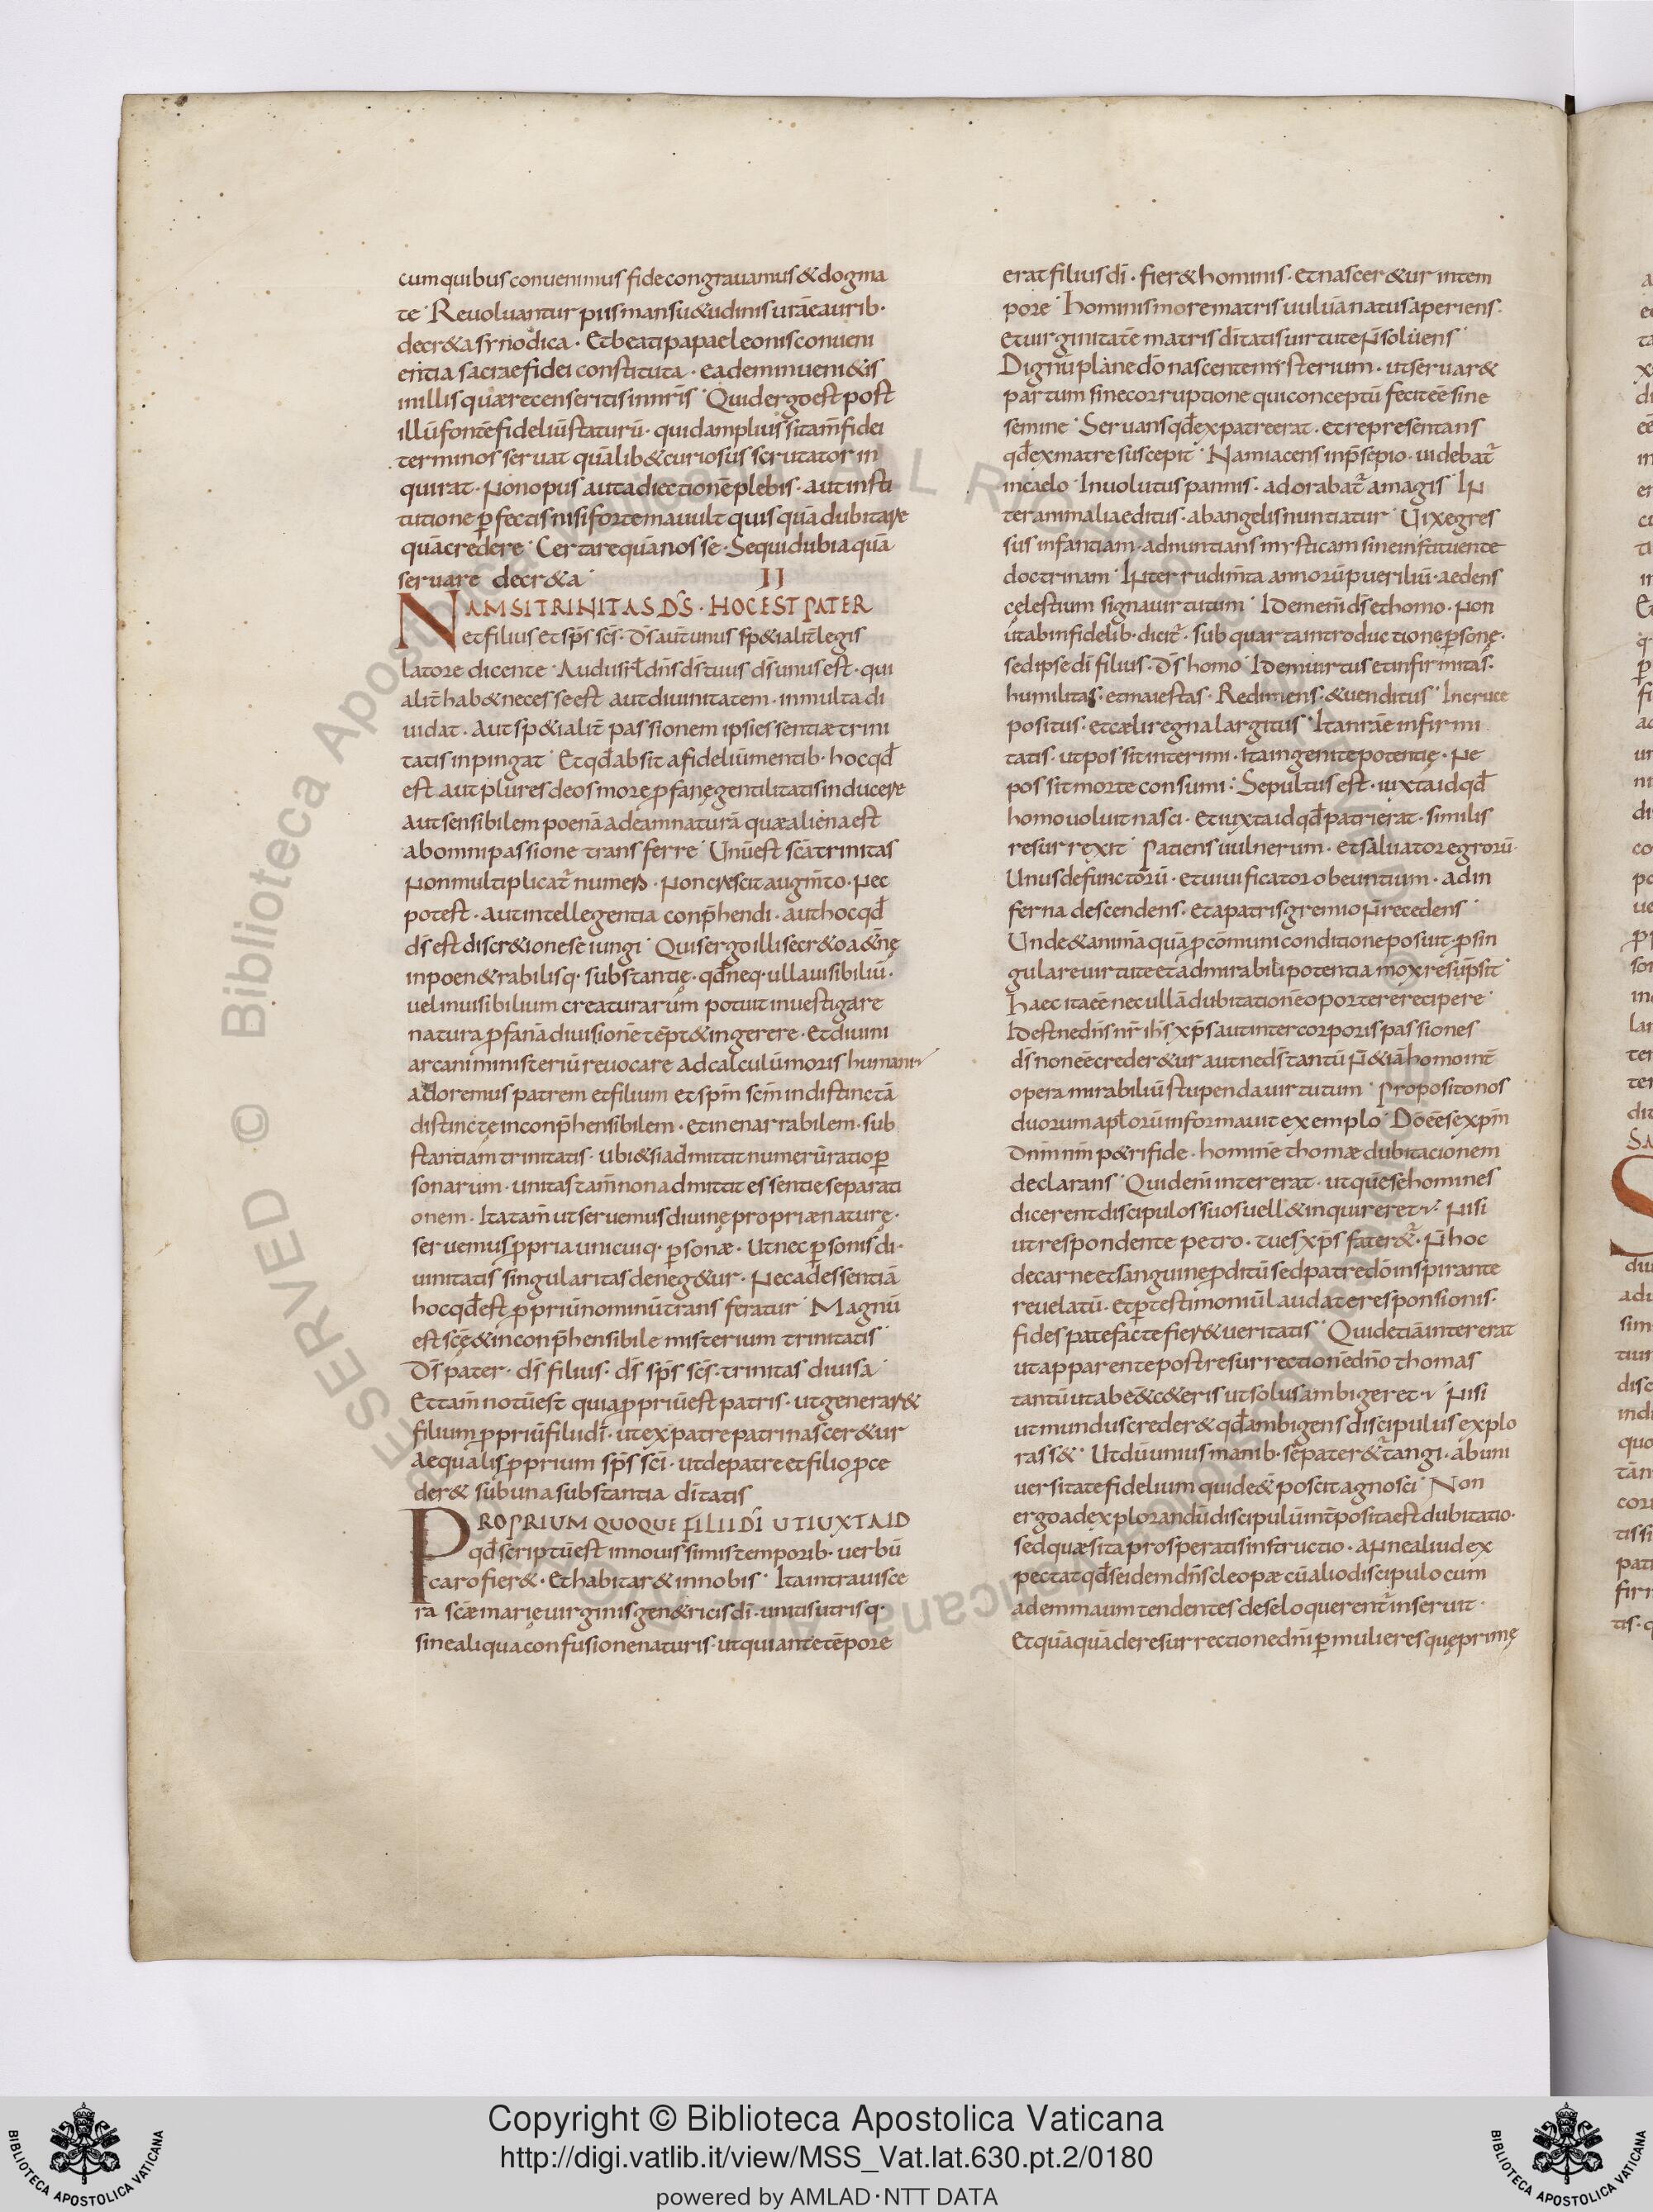 cumquibus conuenimus fide congrauamus & dogma
te· Reuoluantur piis mansu&udinis urāe aurib·
decr&a synodica· Et beati papae leonis conueni
entia sacrae fidei constituta· eadem inueni&is
in illis quae recenseritis innr̄is· Quid ergo est post
illū fontē fideliū staturū· quid amplius si tam̄ fidei
terminos seruat quālib& curiosus scrutator in
quirat· Non opus aut adiectionē plebis· aut insti
tutione ꝑfectis nisi forte mauult quisquā dubitare
quā credere· Certare quā nosse· Sequi dubia quā
seruare decr&a· II
NAM SI TRINITAS D̄S· HOC EST PATER
et filius et sp̄s sc̄s· d̄s aut̄ unus sp&ialit̄ legis
latore dicente· Audi isrł dn̄s d̄s tuus d̄s unus est· qui
alit̄ hab& necesse est aut diuinitatem· in multa di
uidat· Aut sp&ialit̄ passionem ipsi essentiae trini
tatis inpingat· Et qđ absit a fideliū mentib· hoc qđ
est aut plures deos more ꝓfanę gentilitatis inducere
aut sensibilem poenā ad eam naturā quae aliena est
ab omni passione transferre· Unū est sc̄a trinitas
Non multiplicat̄ numero· Non crescit augm̄to· Nec
potest· aut intellegentia conp̄hendi· aut hoc qđ
d̄s est discr&ione seiungi· Quis ergo illi secr&o a&n̄ę
inpoen&rabilisq· substantię· qđ neq· ulla uisibiliū·
uel inuisibilium creaturarum potuit inuestigare
natura ꝓfanā diuisionē tēpt& ingerere· Et diuini
arcani ministeriū reuocare ad calculū moris humani·
adoremus patrem et filium et sp̄m sc̄m indistinctā
distincte inconp̄hensibilem· et inenarrabilem· sub
stantiam trinitatis· ubi &si admittit numerū ratio ꝑ
sonarum· unitas tam̄ non admittit essentie separati
onem· Ita tam̄ ut seruemus diuinę propriae naturę·
seruemus ꝓpria unicuiq· ꝑsonae· Ut nec ꝑsonis di·
uinitatis singularitas deneg&ur· Nec ad essentiā
hoc qđ est ꝓpriū nominū transferatur· Magnū
est sc̄ę & inconp̄hensibile misterium trinitatis·
D̄s pater· d̄s filius· d̄s sp̄s sc̄s· trinitas diuisa·
Et tam̄ notū est quia ꝓpriū est patris· ut generar&
filium ꝓpriū filii dī· ut ex patre patri nascer&ur
aequalis ꝓprium sp̄s sc̄i· ut de patre et filio ꝓce
der& sub una substantia dītatis
PROPRIUM QUOQUE FILII DĪ UT IUXTA ID
qđ scriptū est in nouissimis temporib· uerbū
caro fier&· Et habitar& in nobis· Ita intra uisce
ra sc̄ae marię uirginis gen&ricis dī· unitis utrisq·
sine aliqua confusione naturis· ut qui ante tēpore
erat filius dī· fier& hominis· et nascer&ur in tem
pore· hominis more matris uuluā natus aperiens·
et uirginitatē matris dītatis uirtute n̄ soluens·
Dignū plane dō nascente mysterium· ut seruar&
partum sine corruptione qui conceptū fecit eē sine
semine· Seruans qđ ex patre erat· et representans
qđ ex matre suscepit· Nam iacens in p̄sepio· uidebat̄
in caelo· Inuolutus pannis· adorabat̄ a magis· In
ter animalia editus· ab angelis nuntiatur· Uix egres
sus infantiam· adnuntians mysticam sine instituente
doctrinam· Inter rudim̄ta annorū pueriliū· aedens
cęlestium signa uirtutum· Idem eni d̄s et homo· Non
ut ab infidelib· dicit̄· sub quarta introductione ꝑsonę·
sed ipse dī filius· d̄s homo· Idem uirtus et infirmitas·
humilitas· et maiestas· Redimens· & uenditus· In cruce
positus· et caeli regna largitus· Ita nrāe infirmi
tatis· ut possit interimi· Ita ingenite potentię· Ne
possit morte consumi· Sepultus est· iuxta id qđ
homo uoluit nasci· Et iuxta id qđ patri erat· similis
resurrexit· Patiens uulnerum· et saluator egrorū·
Unus defunctorū· et uiuificator obeuntium· ad in
ferna descendens· et a patris gremio n̄ recedens·
Unde & animā quā ꝓ cōmuni conditione posuit· ꝓ sin
gulare uirtute et admirabili potentia mox resūpsit·
haec ita eē nec ullā dubitationē oportere recipere·
Id est ne dn̄s nr̄ ih̄s xp̄s aut inter corporis passiones
d̄s non eē creder&ur aut ne d̄s tantū n̄ & iā homo int̄
opera mirabiliū stupenda uirtutum· Proposito nos
duorum apłorū informauit exemplo· Docēs exp̄m
dn̄m nr̄m p&ri fide· hominē thomae dubitacionem
declarans· Quid eni intererat· ut quē se homines
dicerent discipulos suos uell& inquirere· Nisi
ut respondente petro· tu es xp̄s fater&· n̄ hoc
de carne et sanguine ꝓditū sed patre dō inspirante
reuelatū· et ꝑ testimoniū laudate responsionis·
fides patefacte fier& ueritatis· Quid etiā intererat
ut apparente post resurrectionē dn̄o thomas
tantū ut abeē& c&eris ut solus ambigeret· Nisi
ut mundus creder& qđ ambigens discipulus explo
rass&· Ut dū unius manib· se pater& tangi· ab uni
uersitate fidelium quid e& poscit agnosci· Non
ergo ad explorandū discipulū int̄posita est dubitatio·
sed quaesita prosperatis instructio· a n̄ ne aliud ex
pectat qđ se idem dn̄s cleopae cū alio discipulo cum
ad emmaum tendentes de se loquerent̄ inseruit·
Et quāquā de resurrectione dn̄i ꝑ mulieres quę primę
Copyright © Biblioteca Apostolica Vaticana
http://digi.vatlib.it/view/MSS_Vat.lat.630.pt.2/0180
powered by AMLAD·NTT DATA
BIBLIOTECA APOSTOLICA VATICANA
BIBLIOTECA APOSTOLICA VATICANA